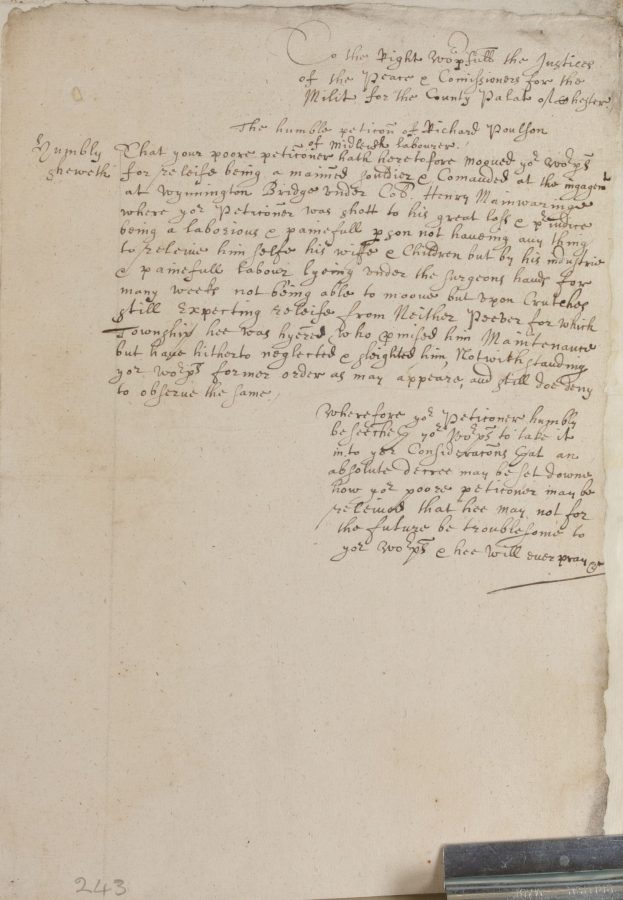 To the Right Worpfull the Justices
of the Peace & Comissioners for the
Milit for the County Palat of Chester
The humble peticon of Richard Poulson
of Midlewch labourer.
Humbly sheweth
That your poore peticoner hath heretofore moqued yor Worps
for releife being a maimed souldier & Comanded at the ingagemt
at Wynnington Bridge under Coll Henry Mainwaringe
where yor Peticoner was shott to his great loss & prjudice
being a laborious & painefull pson not haveing any thing
to releive him selfe his wiffe & Children but by his industrie
& painefull labour lyeing under the surgeons hands for
many weeks not being able to moove but upon Crutches
still Expecting releife from Neither Peever for which
Township hee was hyered, who pmised him Maintenance
but have hitherto neglected & sleighted him, Notwithstanding
yor Worps former order as may appeare, and still doe deny
to observe the same.
Wherefore yor Peticoner humbly
beseecheth yor Worps to take it
into yor Consideracons that an
absolute decree may be set downe
how yor poore peticoner may be
releived that hee may not for
the future be troublesome to
yor Worps & hee will ever pray &c
243